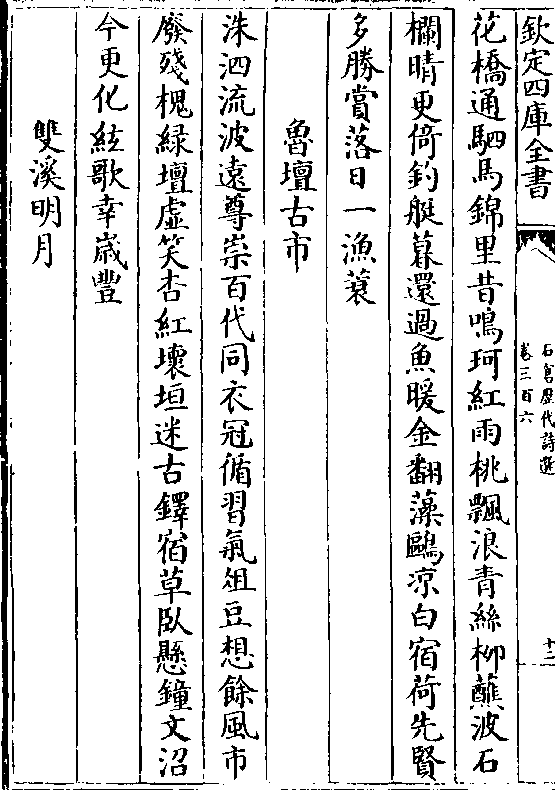 欽定四庫全書
石倉歷代詩選
卷三百六
十二
花橋通駟馬錦里昔鳴珂紅雨桃飄浪青絲柳蘸波石
欄晴更倚釣艇暮還過魚暖金翻藻鷗凉白宿荷先賢
多勝賞落日一漁蓑
魯壇古市
洙泗流波遠尊崇百代同衣冠循習氣俎豆想餘風市
廢殘槐緑壇虛笑杏紅壊垣迷古鐸宿草臥懸鐘文沼
今更化絃歌幸歲豐
雙溪明月